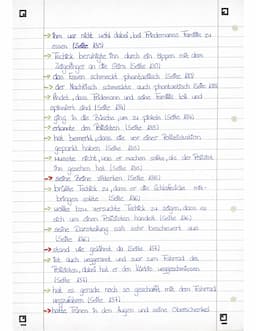 → Ihm war nicht wohl dabei, bei Friedemanns Familie zu
essen (Seite 185)
→ Tschick beruhigte ihn durch ein tippen mit dem
Zeigefinger an die Stirn (Seite 185)
→ das Essen schmeckt phantastisch (Seite 185)
→ der Nachtisch schmeckte auch phantastisch (Seite 185)
→ findet, dass Friedemann und seine Familie toll und
sind (Seite 184)
→ ging in die Büsche, um zu pinkeln (Seite 184)
→ erkannte den Polizisten (Seite 185)
→ hat bemerkt, dass die vor einer Polizeistation
geparkt haben (Seite 185)
→ wusste nicht, was er machen sollte, als der Polizist
ihn gesehen hat (Seite 185)
→ seine Beine zitterten (Seite 186)
→ brüllte Tschick zu, dass er die Schlafsäcke mit-
bringen sollte (Seite 186)
→ wollte bzw. versuchte Tschick zu zeigen, dass es
sich um einen Polizisten handelt (Seite 186)
→ seine Darstellung sah sehr bescheuert aus
(Seite 186)
→ stand wie gelähmt da (Seite 187)
→ ist auch weggerannt und zwar zum Fahrrad des
Polizisten, dabei hat er den Kürbis weggeschmissen
(Seite 187)
→ hat es gerade noch so geschafft mit dem Fahrrad
wegzufahren (Seite 187)
→ hatte Tränen in den Augen und seine Oberschenkel